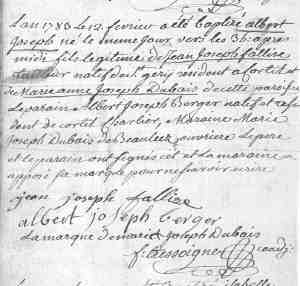 L'an 1783 le 12 fevrier a été baptisé albert
Joseph né le meme jour vers les 3 h: apres
midi fils legitime de Jean Joseph fallise
natif de St gery residant a Cortil et
de Marie anne Joseph Dubais de cette paroisse
Le parain Albert Joseph Berger natif et resi
dent de Cortil, Maraine Marie
Joseph Dubais de ouvriere Le pere
et le parain ont signés ici et La maraine a
apposé sa marque pour ne savoir ecrire
jean joseph fallise
albert joseph berger
La marque de marie Joseph Dubais